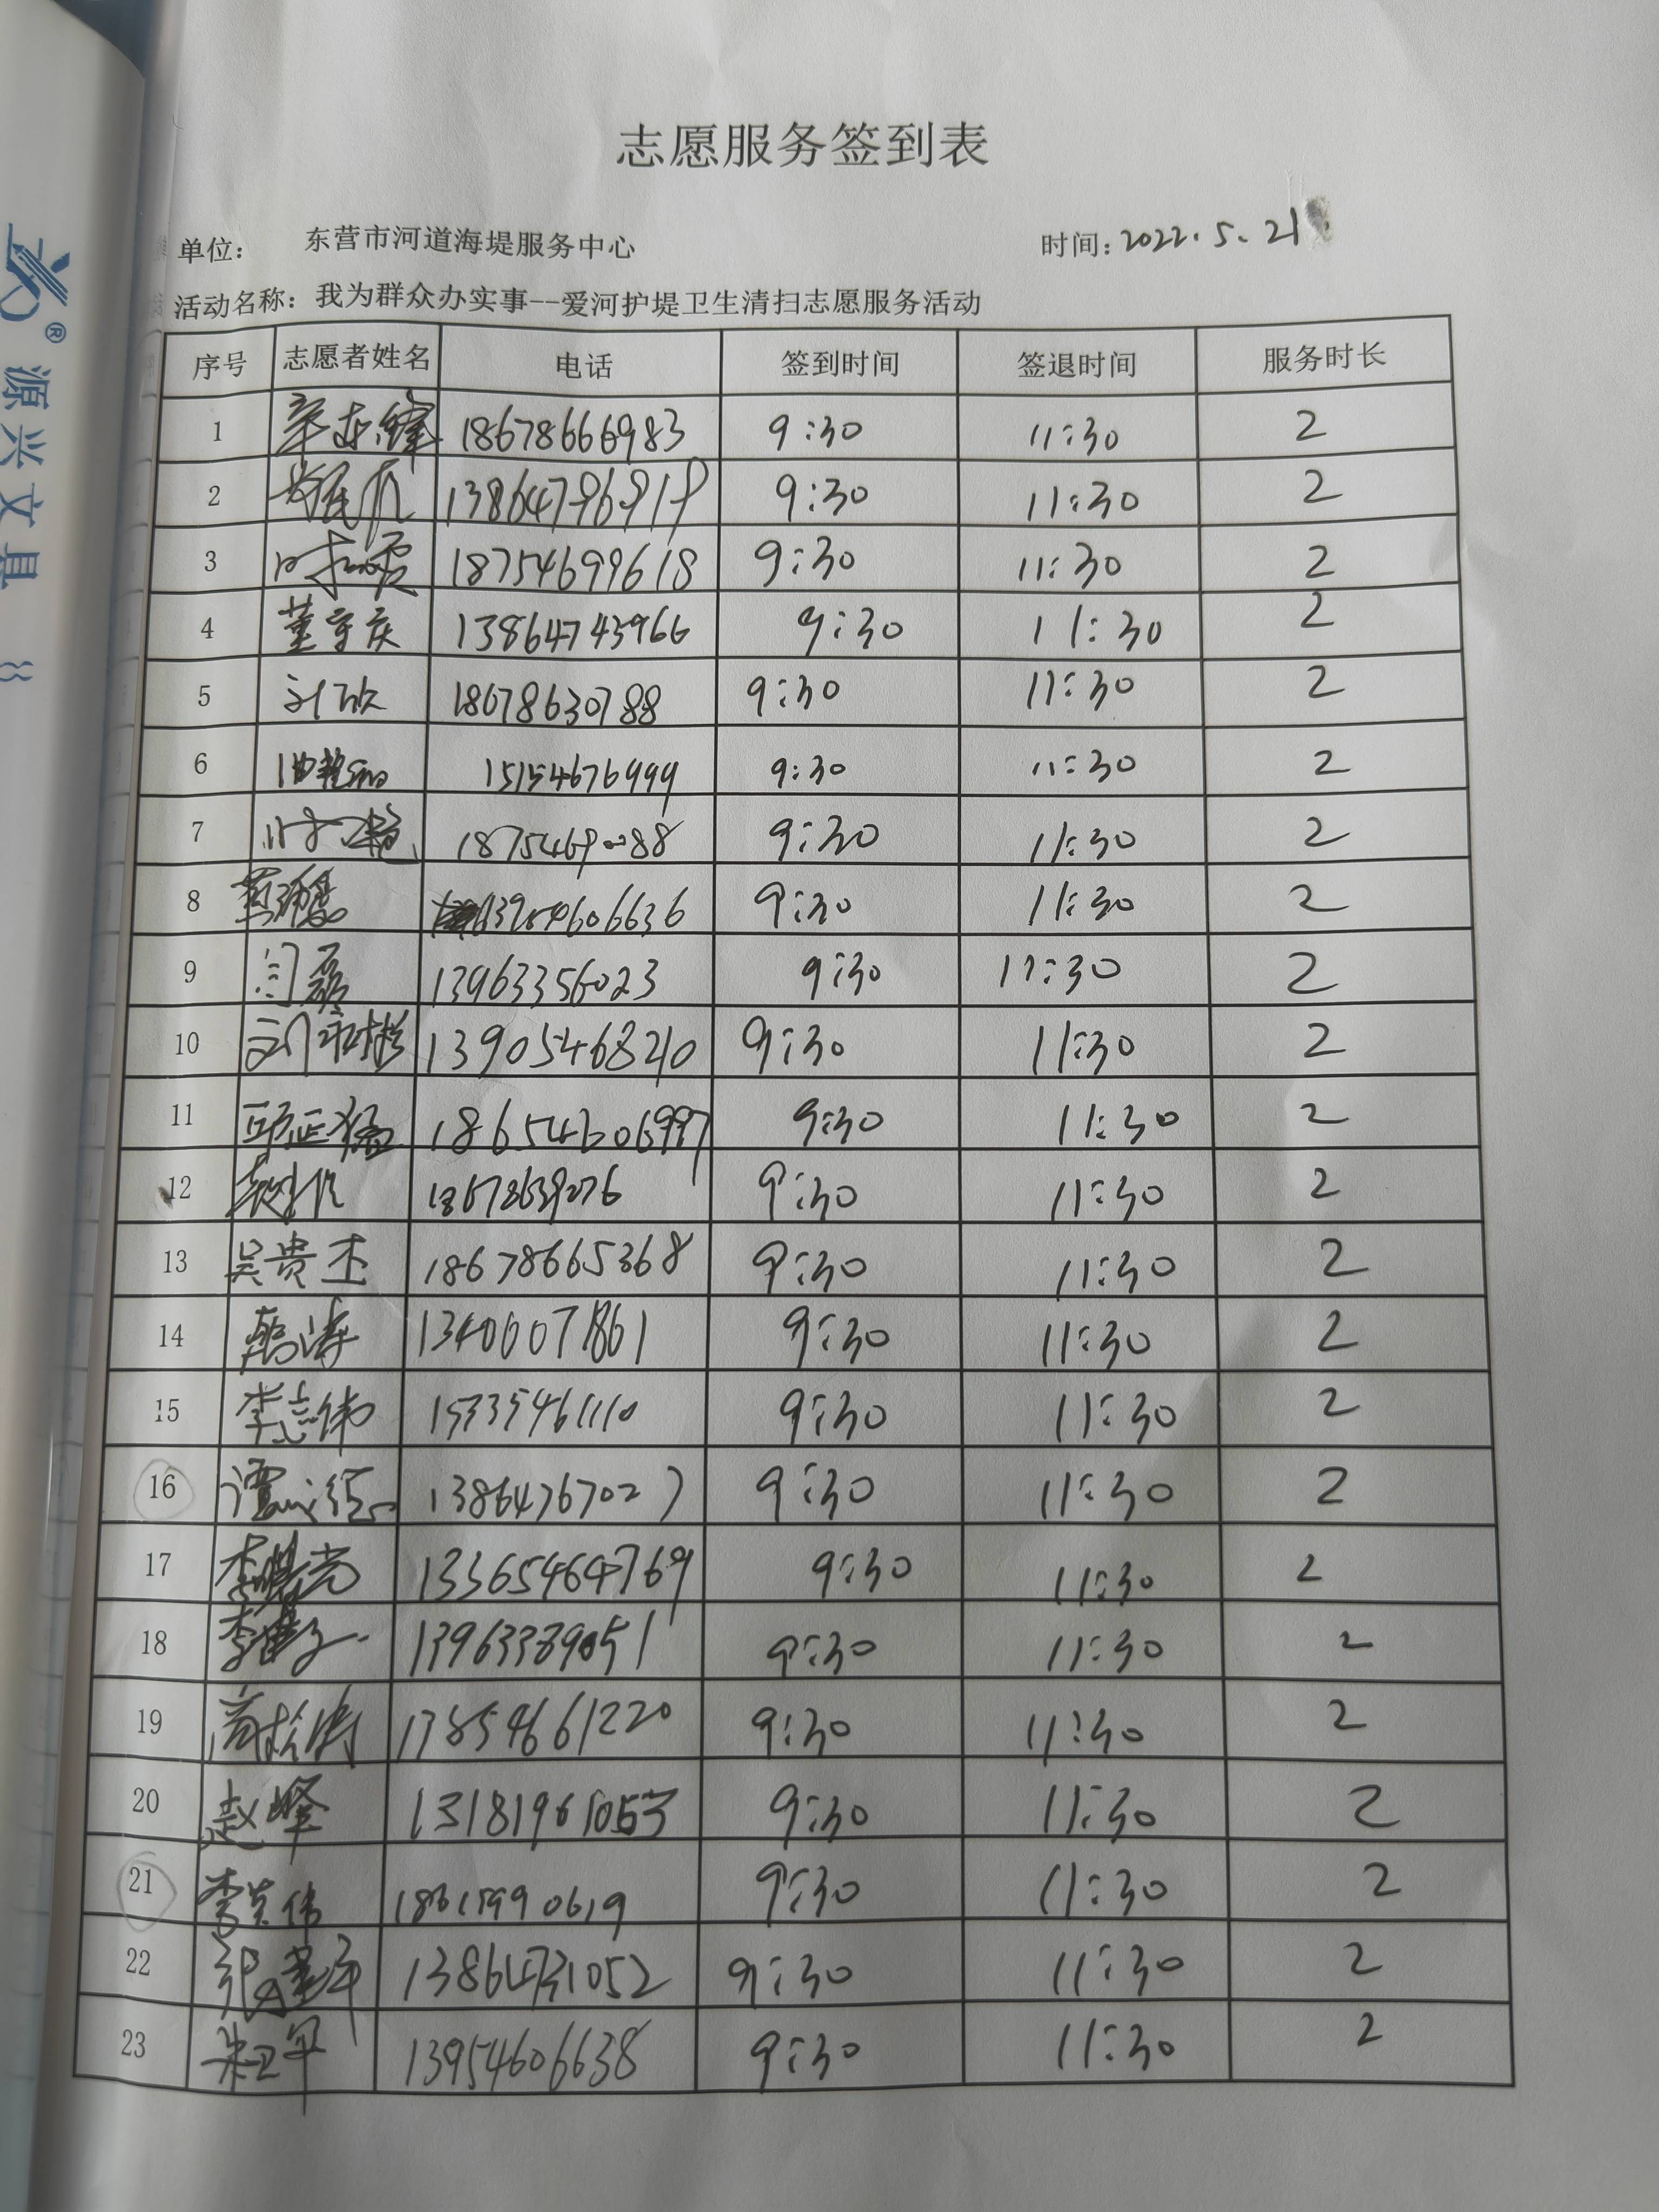 志愿服务签到表
单位: 东营市河道海堤服务中心 时间: 2022.5.21
活动名称: 我为群众办实事--爱河护堤卫生清扫志愿服务活动
序号 志愿者姓名 电话 签到时间 签退时间 服务时长
1 18678666983 9:30 11:30 2
2 13864796919 9:30 11:30 2
3 18754699618 9:30 11:30 2
4 董守庆 13864743966 9:30 11:30 2
5 刘欣 18678630788 9:30 11:30 2
6 15154676999 9:30 11:30 2
7 9:30 11:30 2
8 13954606636 9:30 11:30 2
9 闫磊 13963356023 9:30 11:30 2
10 13905468210 9:30 11:30 2
11 邱正猛 18654606997 9:30 11:30 2
12 9:30 11:30 2
13 吴贵杰 18678665368 9:30 11:30 2
14 13406071861 9:30 11:30 2
15 李志伟 15335461110 9:30 11:30 2
16 13864767027 9:30 11:30 2
17 13365464769 9:30 11:30 2
18 9:30 11:30 2
19 商松涛 13854661220 9:30 11:30 2
20 赵峰 13181961053 9:30 11:30 2
21 李英伟 9:30 11:30 2
22 张建军 13864731052 9:30 11:30 2
23 朱卫军 13954606638 9:30 11:30 2
源兴文具